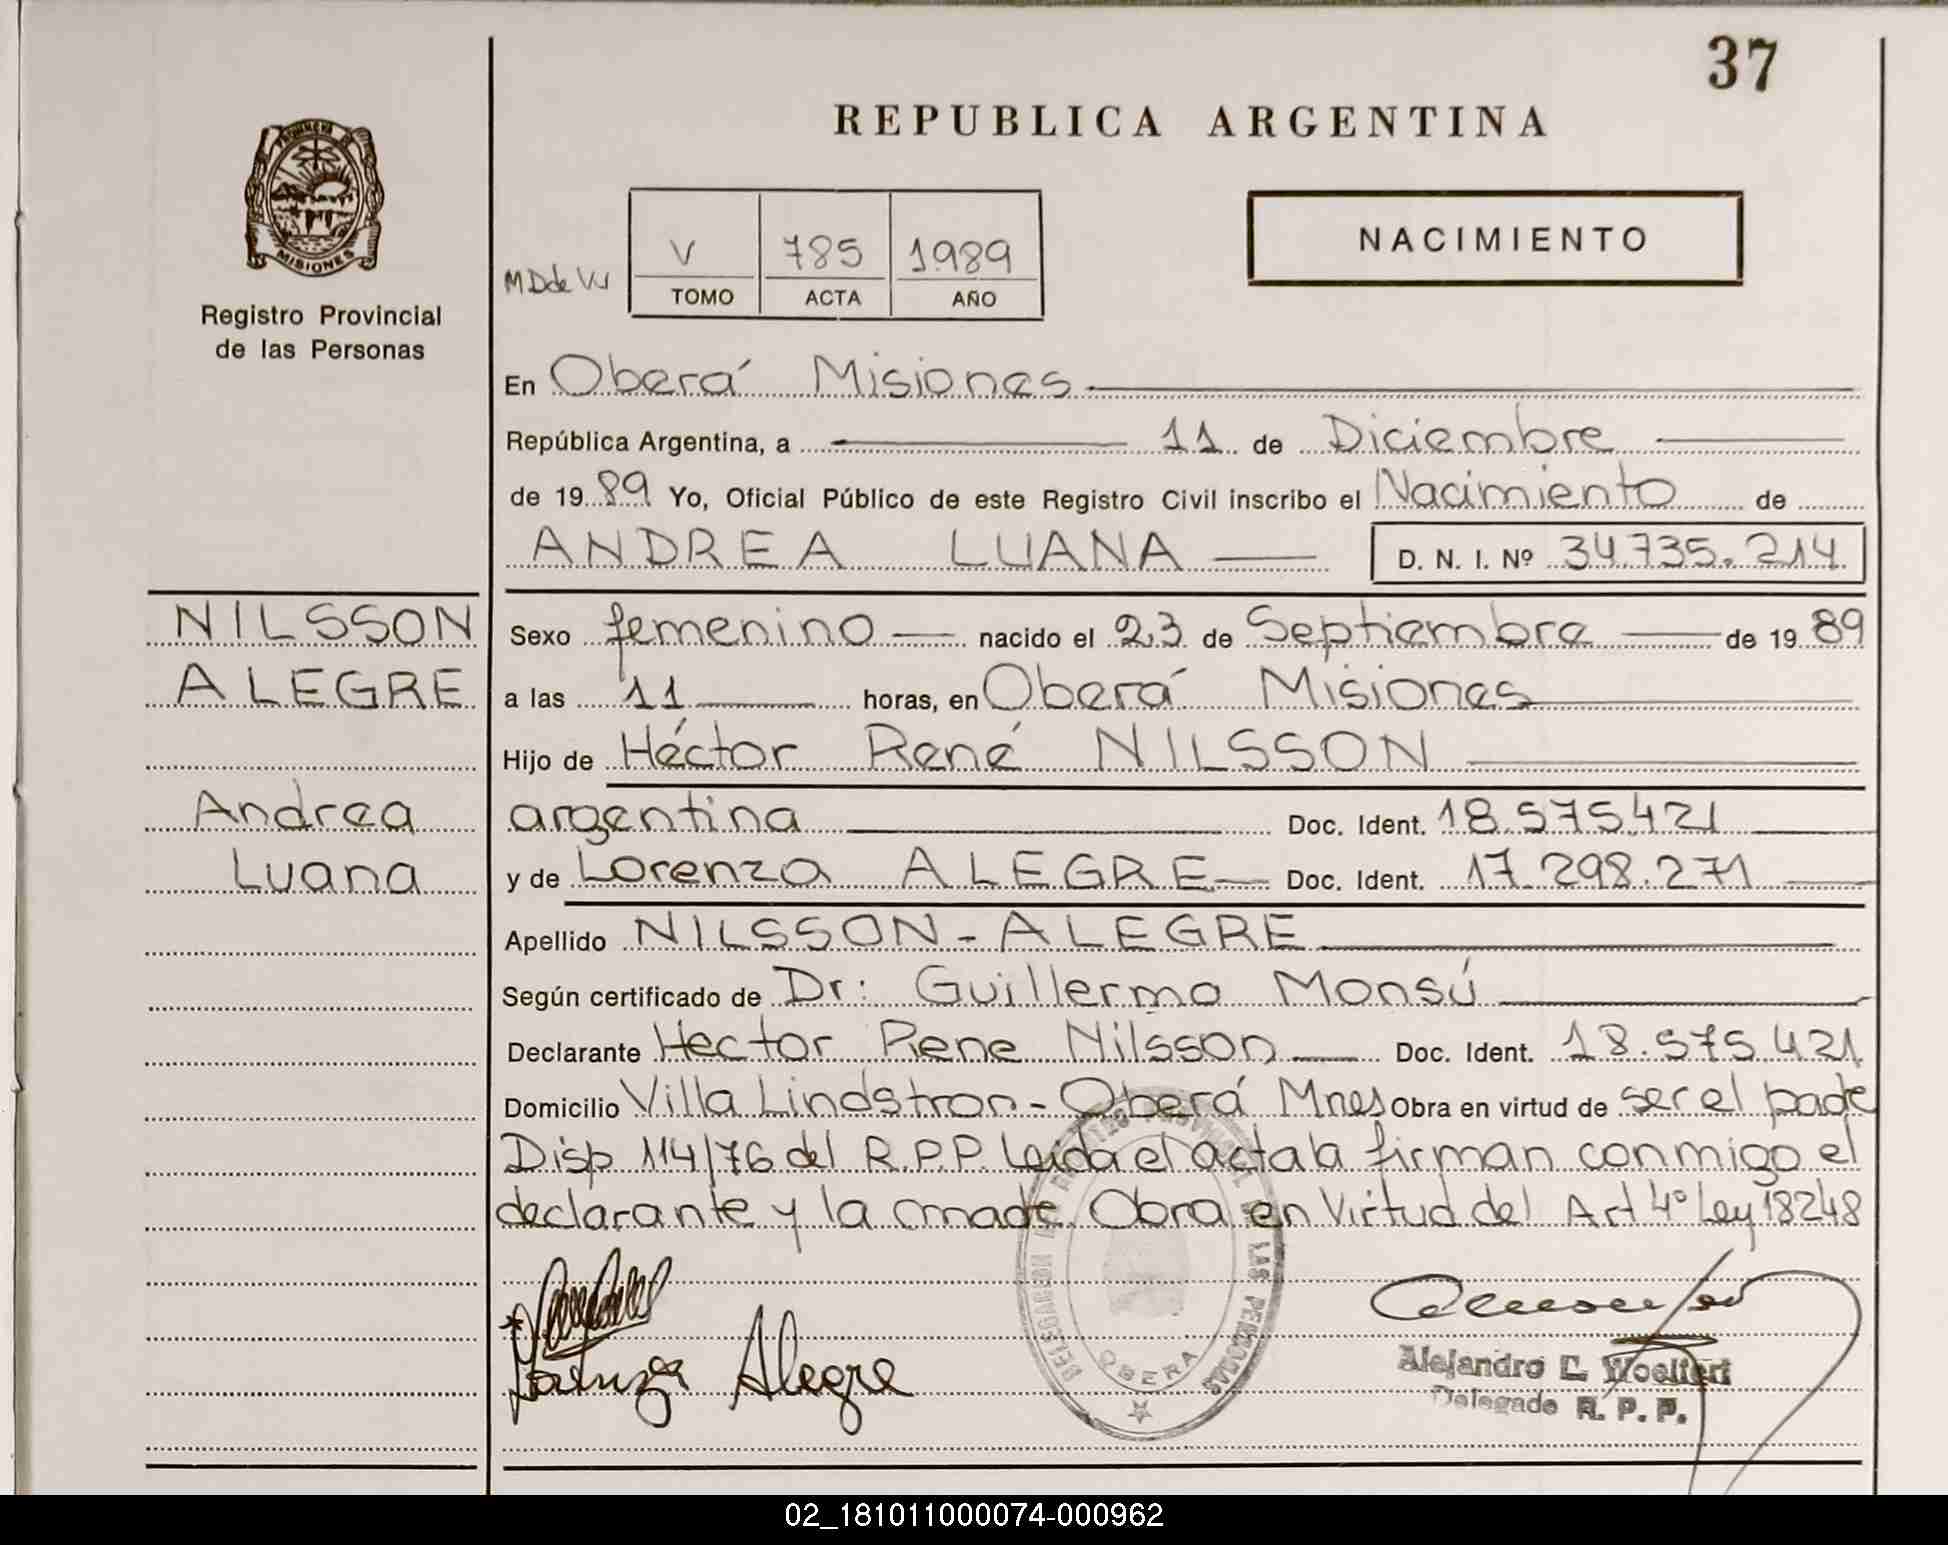 37
REPUBLICA ARGENTINA
PROVINCIA DE
MISIONES
Registro Provincial
de las Personas
NACIMIENTO
V 785 1989
TOMO ACTA AÑO
En Oberá Misiones
República Argentina, a 11 de Diciembre
de 1989 Yo, Oficial Público de este Registro Civil inscribo el Nacimiento de
ANDREA LUANA D. N. I. Nº 34.735.214
NILSSON
ALEGRE
Andrea
Luana
Sexo femenino nacido el 23 de Septiembre de 1989
a las 11 horas, en Oberá Misiones
Hijo de Héctor René NILSSON
argentina Doc. Ident. 18.575.421
y de Lorenza ALEGRE Doc. Ident. 17.298.271
Apellido NILSSON-ALEGRE
Según certificado de Dr: Guillermo Monsú
Declarante Hector Rene Nilsson Doc. Ident. 18.575.421
Domicilio Villa Lindstron - Oberá Mnes Obra en virtud de ser el padre
Disp 114/76 del R.P.P. Leida el acta la firman conmigo el
declarante y la madre. Obra en Virtud del Art 4º Ley 18248
Lorenza Alegre
OBERA
Alejandro E. Woelfert
Delegado R. P. P.
02_181011000074-000962